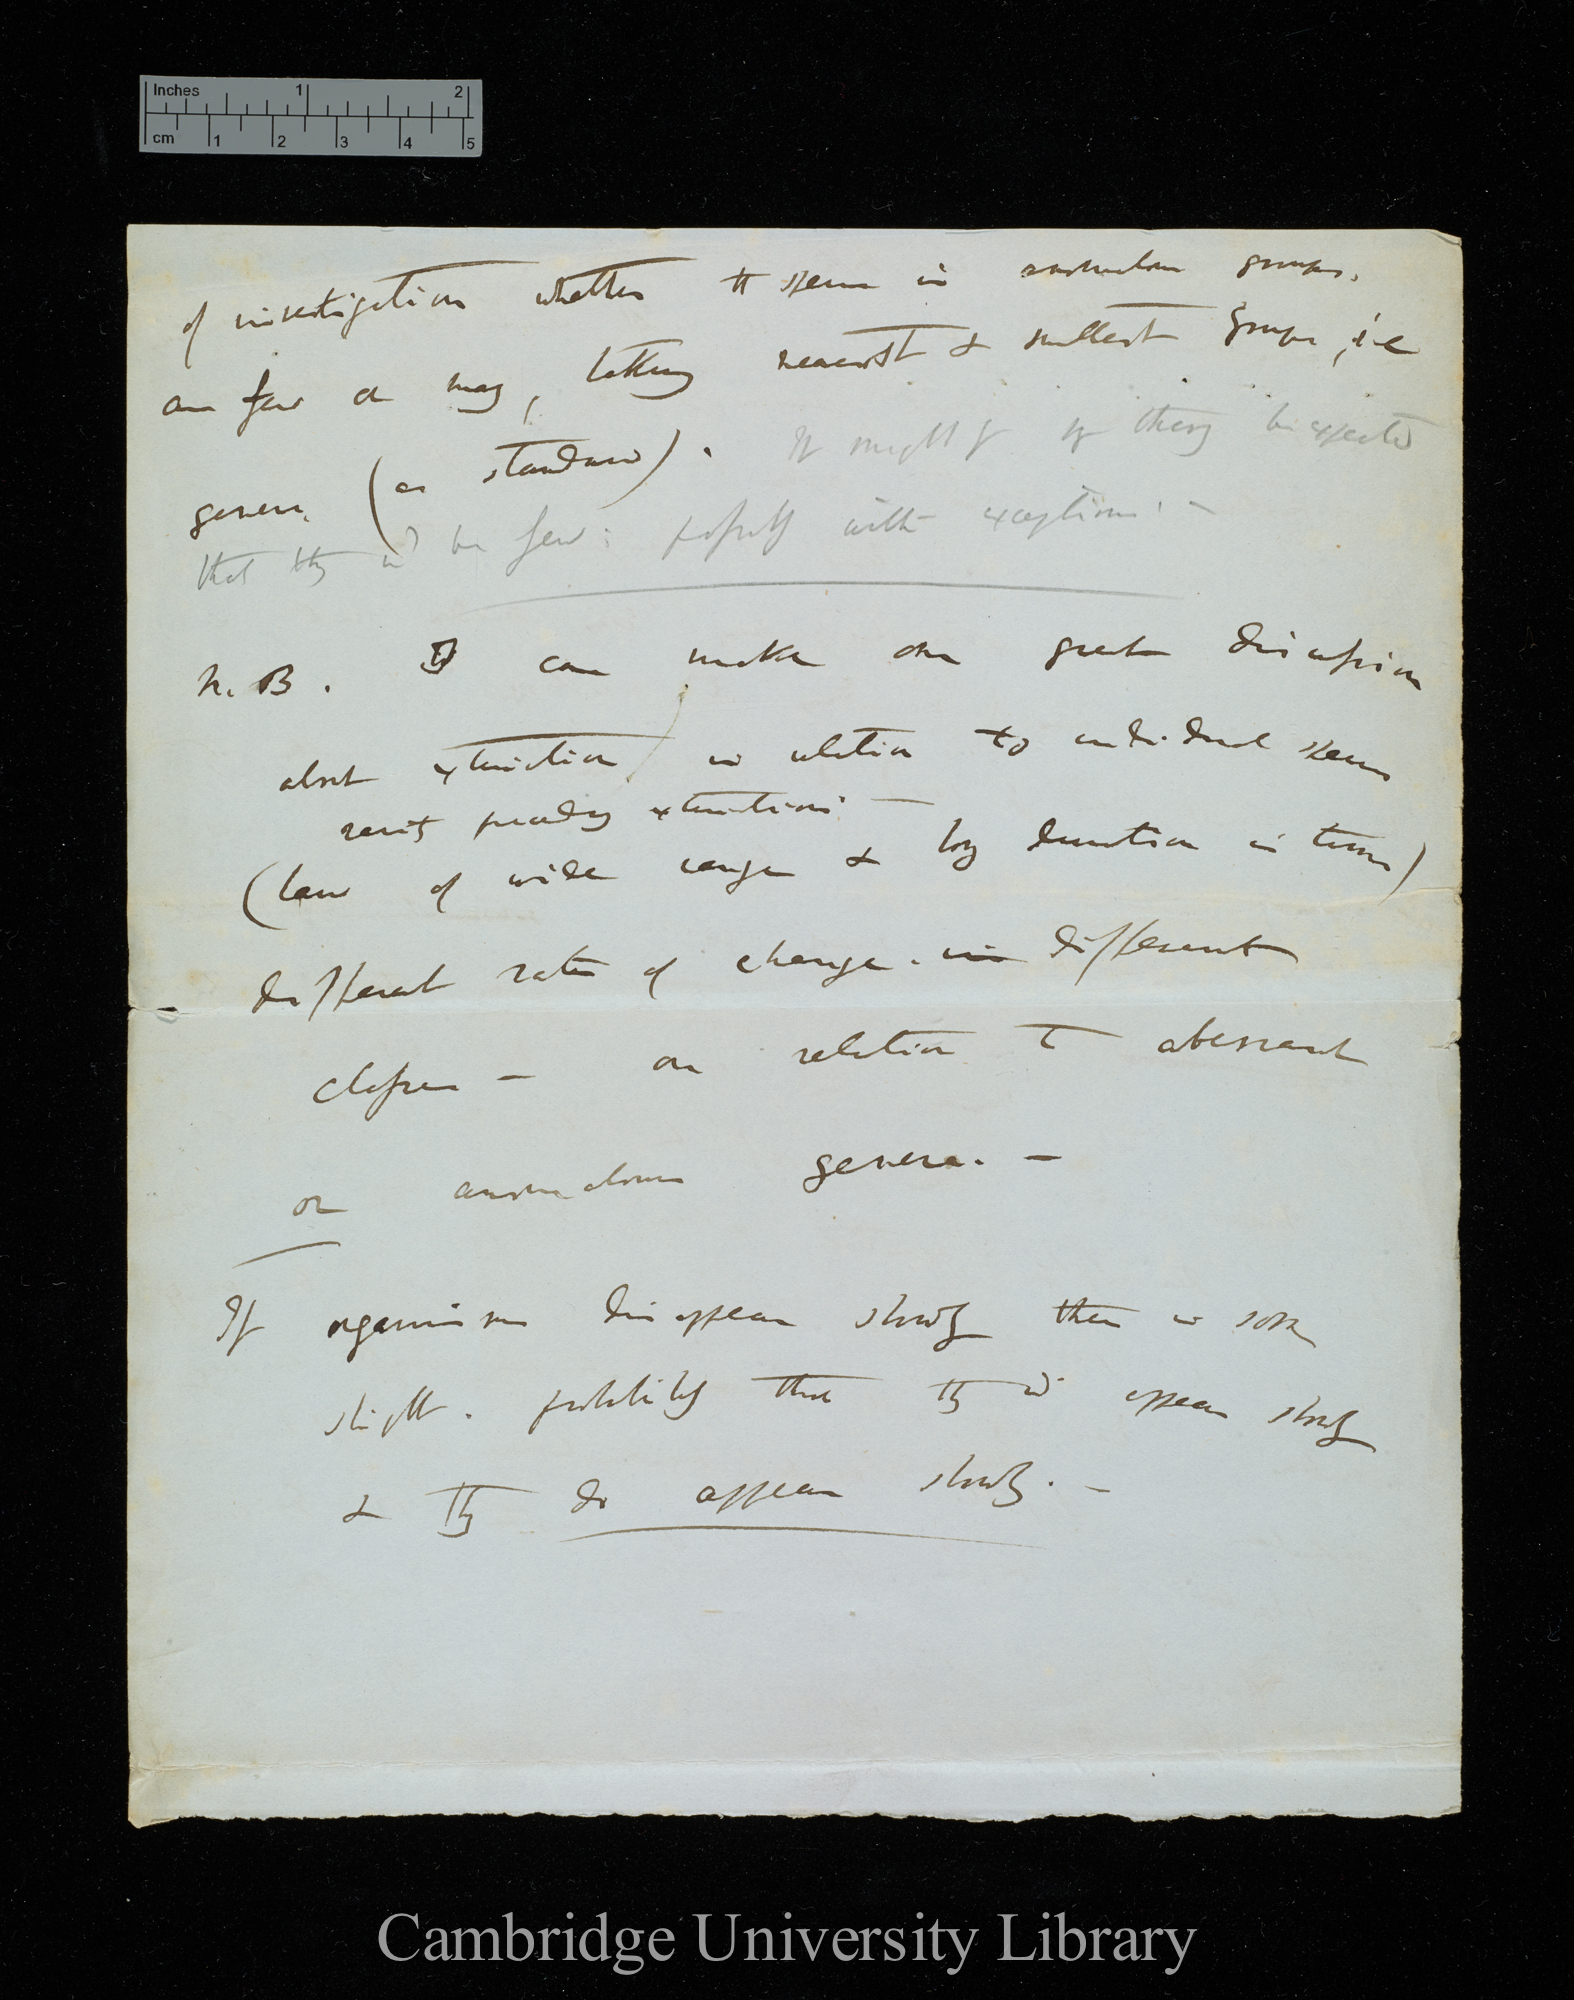 Inches 1 2
cm 1 2 3 4 5
of investigation whether the species in anomalous groups.
are few or many, taking nearest & smallest groups, i.e
genera (as standard). It might fr my theory be expected
that they wd be few: possibly with exceptions. —
N. B. I can make one great discussion
about extinction in relation to individual species
rarity preceding extinction —
(law of wide range & long duration in time)
different rates of change. in different
classes — on relation to aberrant
or anomalous genera. —
If organisms disappear slowly there is some
slight. probability that they wd appear slowly
& they do appear slowly. —
Cambridge University Library